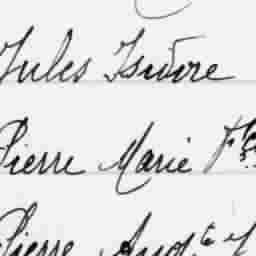 Jules Isidore
Pierre Marie
Pierre Aug.te